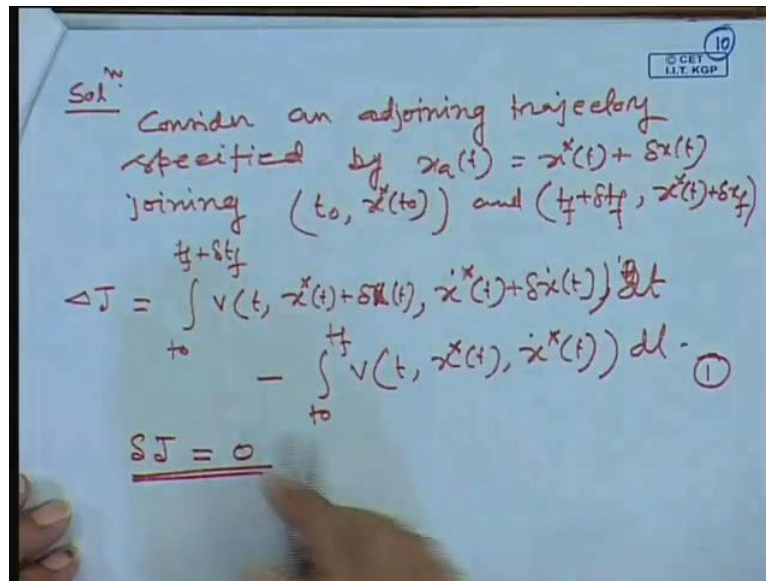 10
© CET
I.I.T. KGP
Solⁿ:
Consider an adjoining trajectory
specified by xₐ(t) = x*(t) + δx(t)
joining (t₀, x*(t₀)) and (t_f+δt_f, x*(t)+δx_f)
ΔJ = ∫_{t₀}^{t_f+δt_f} V(t, x*(t)+δx(t), ẋ*(t)+δẋ(t)) dt
− ∫_{t₀}^{t_f} V(t, x*(t), ẋ*(t)) dt. ①
δJ = 0